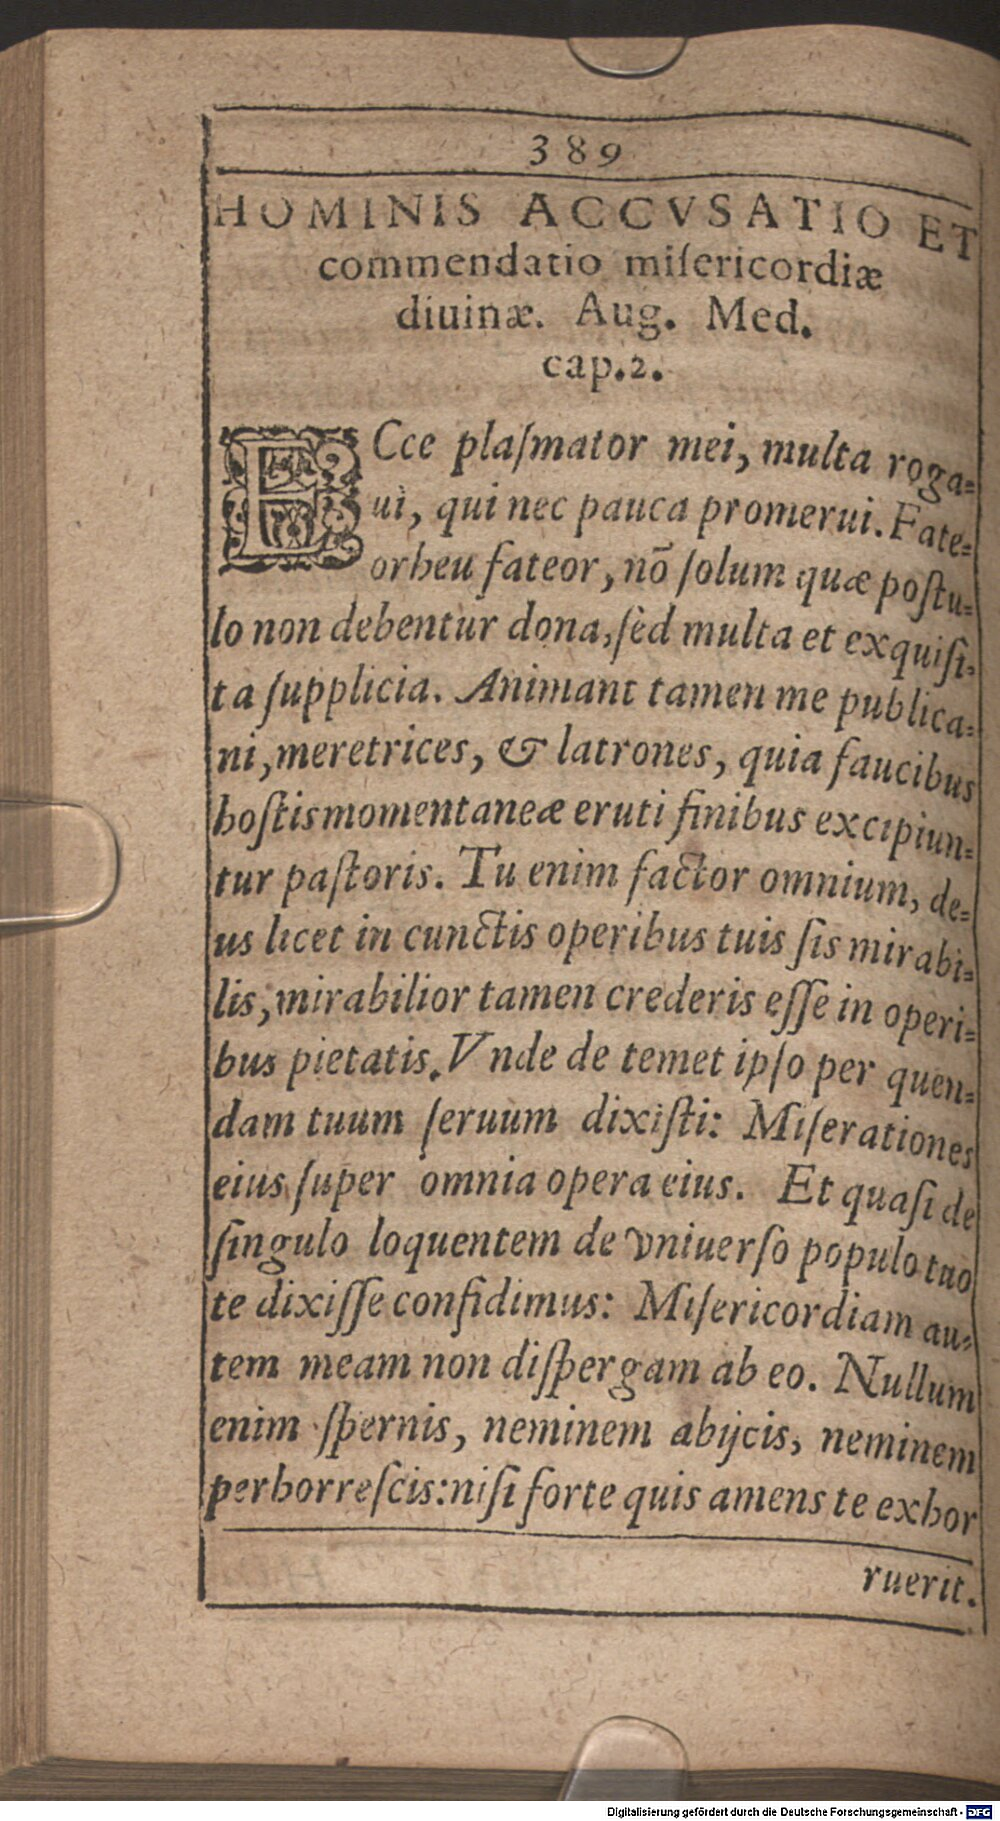 389
HOMINIS ACCVSATIO ET
commendatio miſericordiæ
diuinæ. Aug. Med.
cap. 2.
ECce plaſmator mei, multa roga=
ui, qui nec pauca promerui. Fate=
or heu fateor, nõ ſolum quæ poſtu=
lo non debentur dona, ſed multa et exquiſi=
ta ſupplicia. Animant tamen me publica=
ni, meretrices, & latrones, quia faucibus
hoſtis momentaneæ eruti finibus excipiun=
tur paſtoris. Tu enim factor omnium, de=
us licet in cunctis operibus tuis ſis mirabi=
lis, mirabilior tamen crederis eſſe in operi=
bus pietatis. Vnde de temet ipſo per quen=
dam tuum ſeruum dixiſti: Miſerationes
eius ſuper omnia opera eius. Et quaſi de
ſingulo loquentem de vniuerſo populo tuo
te dixiſſe confidimus: Miſericordiam au=
tem meam non diſpergam ab eo. Nullum
enim ſpernis, neminem abijcis, neminem
perhorreſcis: niſi forte quis amens te exhor
ruerit.
Digitalisierung gefördert durch die Deutsche Forschungsgemeinschaft - DFG